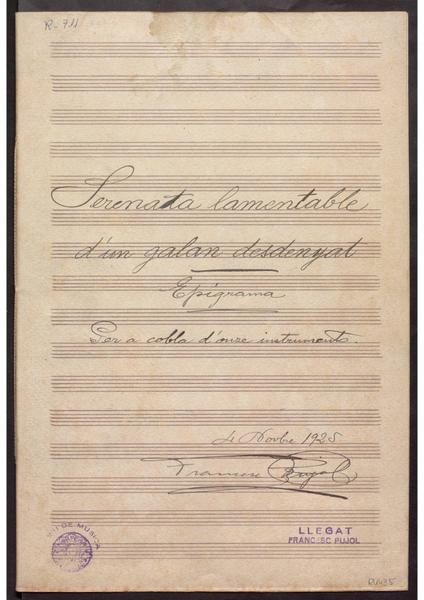 R-711
Serenata lamentable
d'un galan desdenyat
Epígrama
Per a cobla d'onze instruments.
4 Novbre 1925
Francesc Pujol
LLEGAT
FRANCESC PUJOL
DE MUSICA